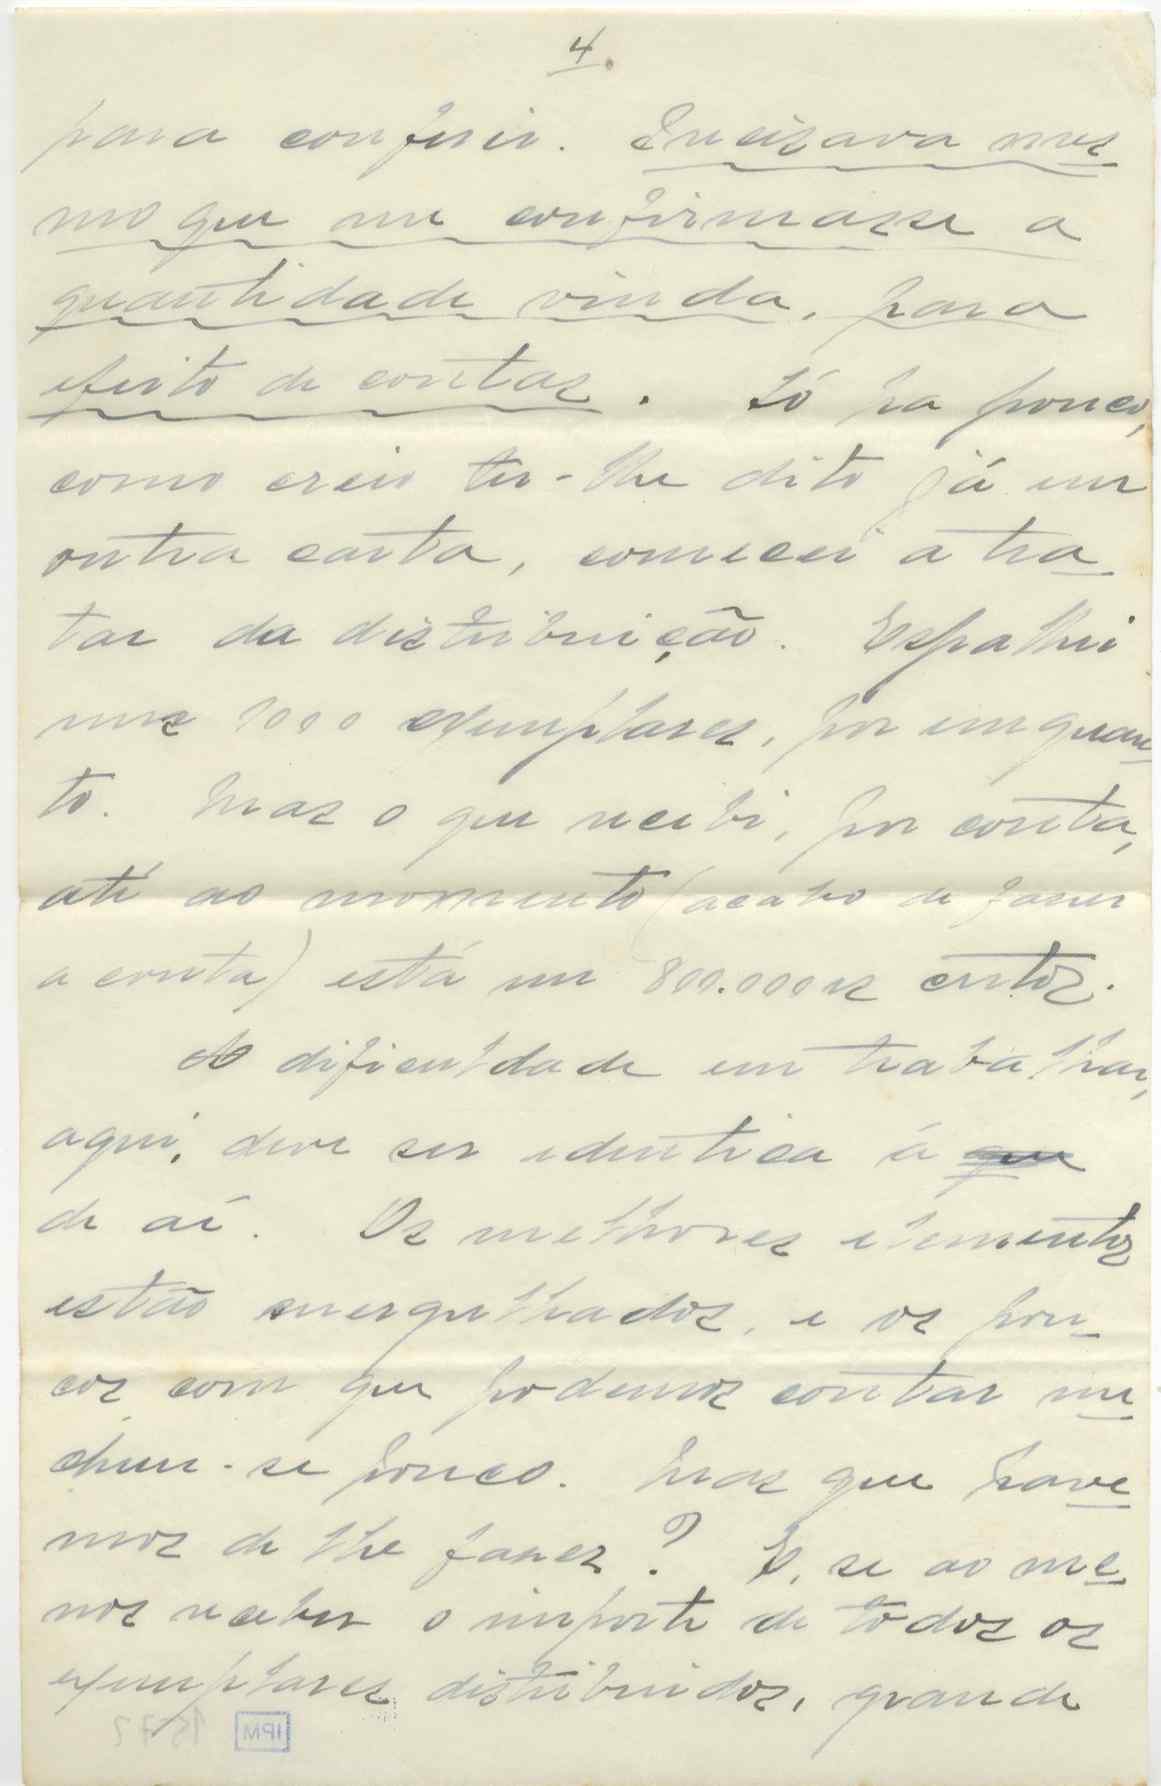 4.
para conferir. Precisava mes
mo que me confirmasse a
quantidade vinda, para
efeito de contas. Só ha pouco,
como creio ter-lhe dito já em
outra carta, comecei a tra-
tar da distribuição. Espalhei
uns 1000 exemplares, por emquan-
to. Mas o que recebi, por conta,
até ao momento (acabo de fazer
a conta) está em 800.000 rs certos.
A dificuldade em trabalhar,
aqui, deve ser identica á que
de aí. Os melhores elementos
estão mergulhados, e os pou-
cos com que podemos contar me
chem-se pouco. Mas que have
mos de lhe fazer? E, se ao me
nos receber o importe de todos os
exemplares distribuidos, grande
IPM
1572